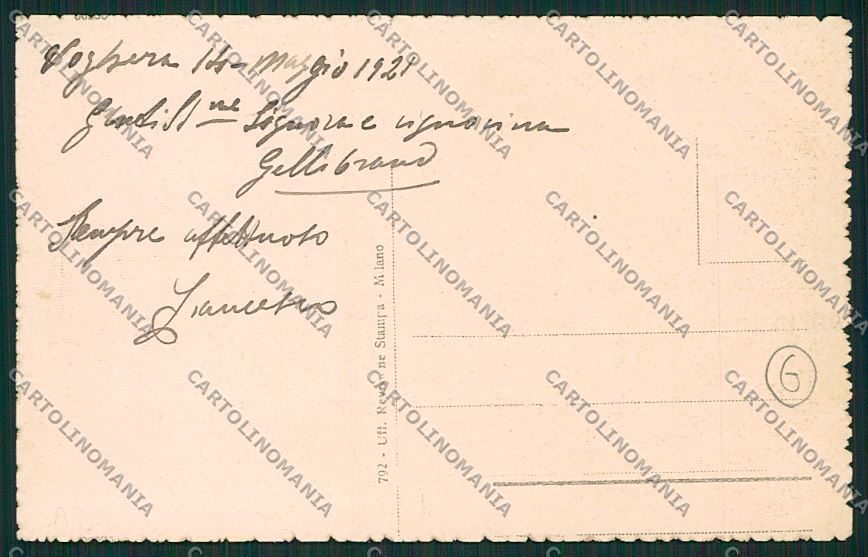 Voghera 14 Maggio 1921
Gentil me Signora e signorina
Gellibrand
Sempre affettuoso
792 - Uff. Revis. ne Stampa - Milano
6
CARTOLINOMANIA